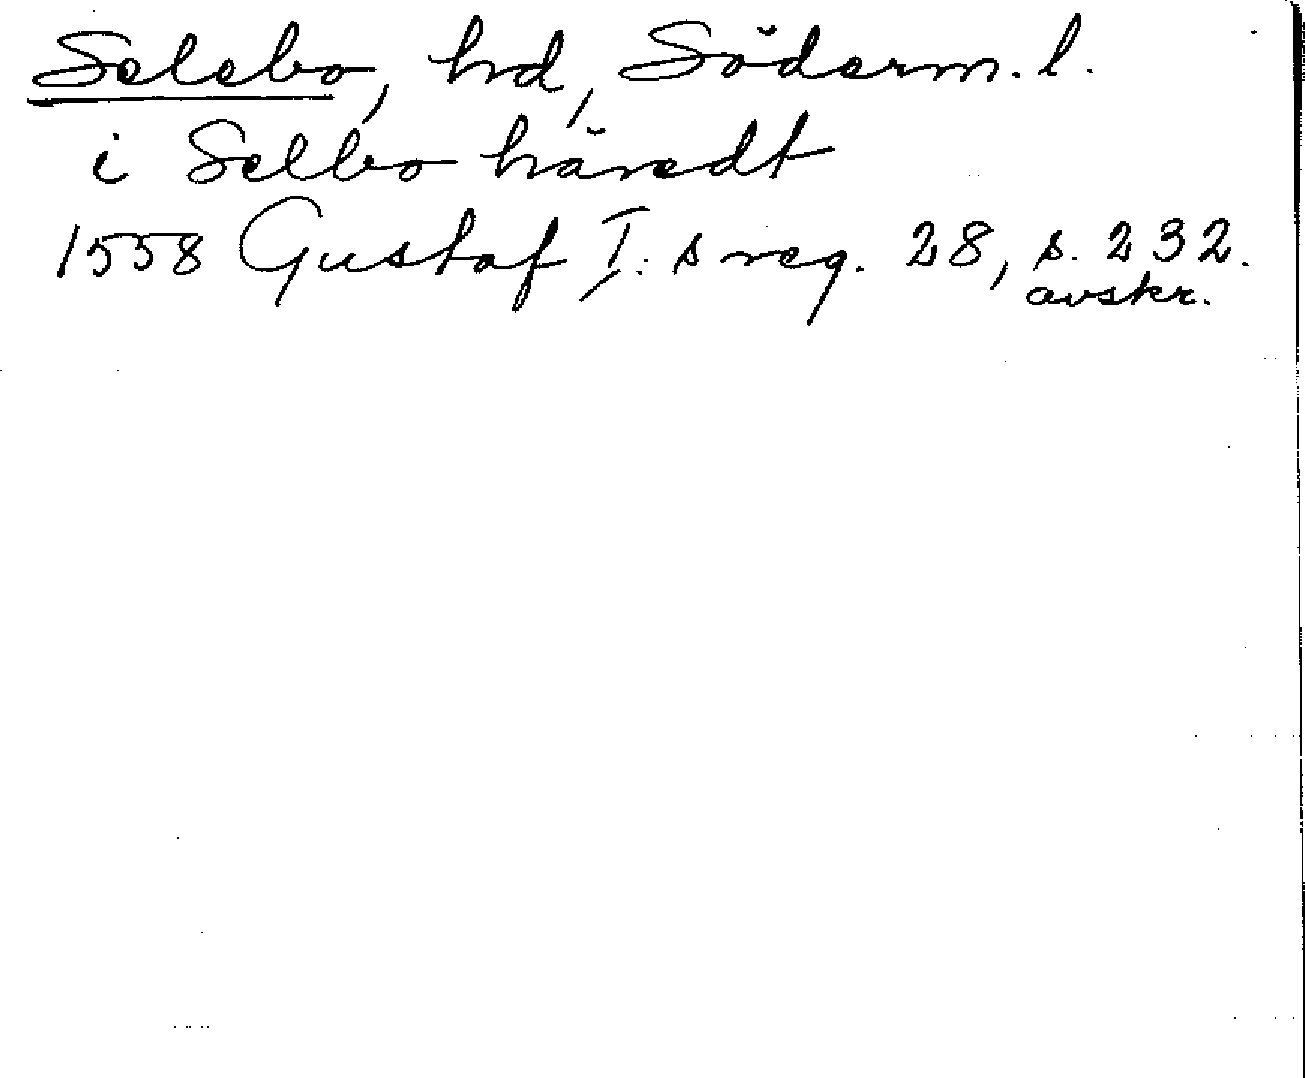 Selebo, hd, Söderm. l.
i Selbo häredt
1558 Gustaf I:s reg. 28, s. 232.
avskr.